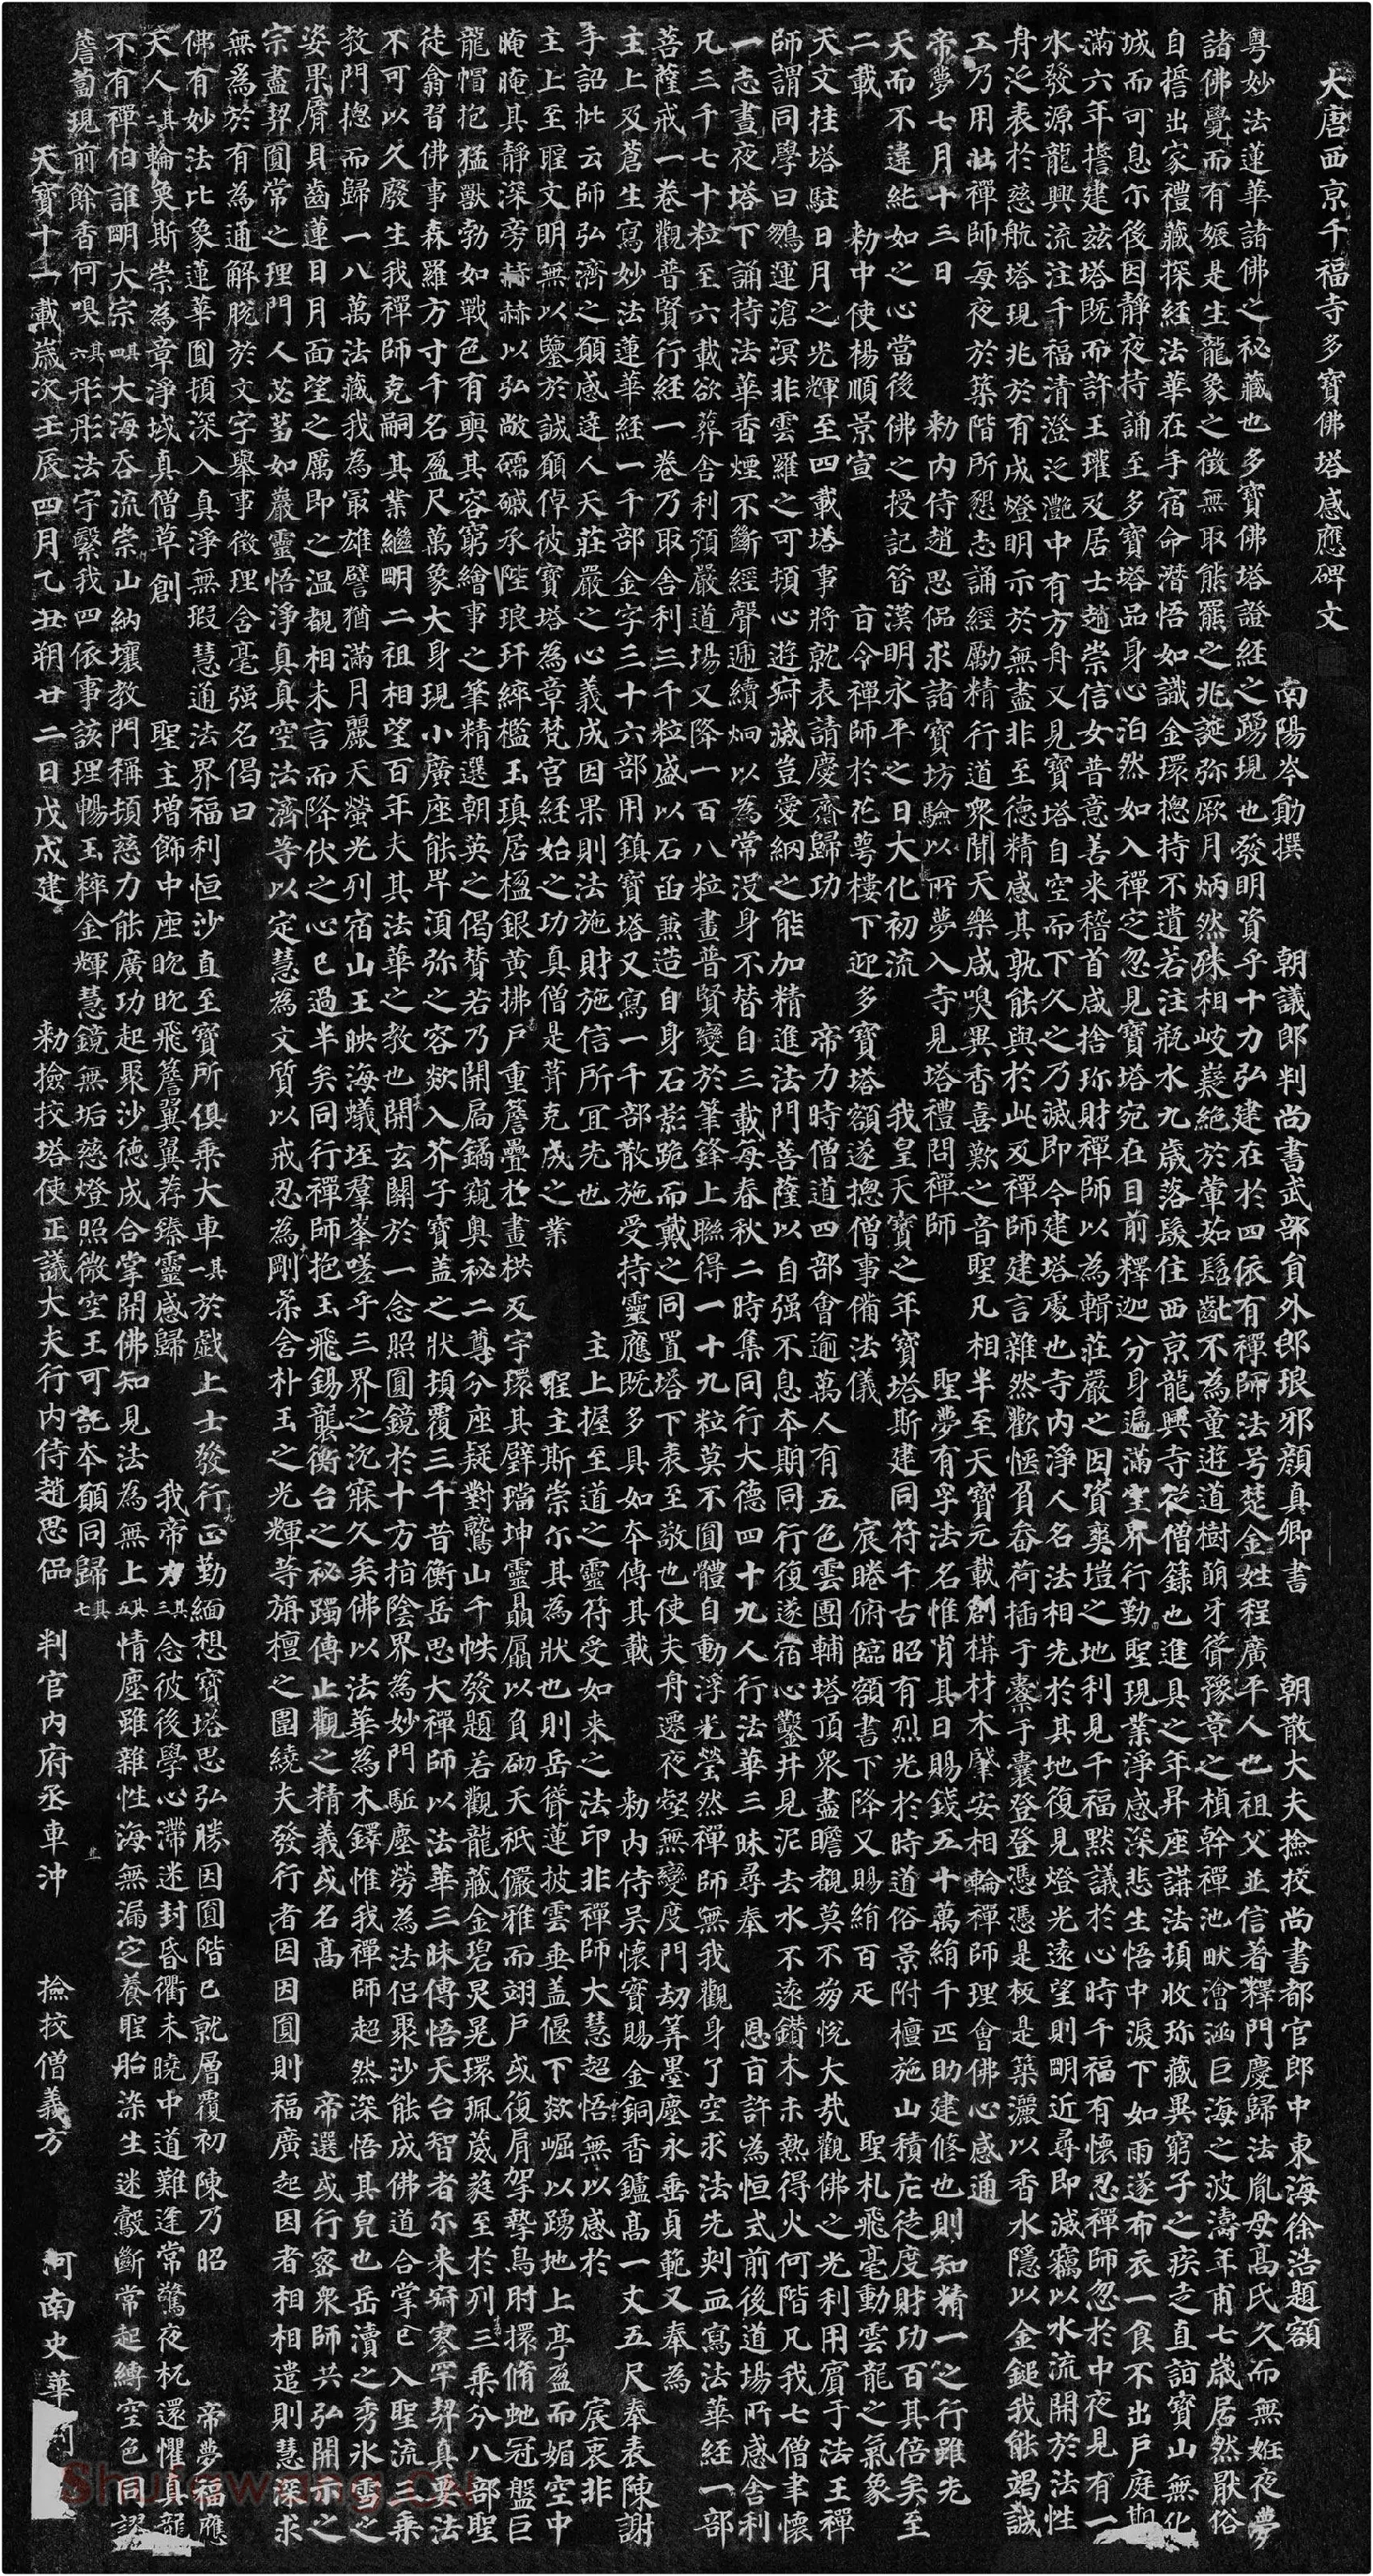 大唐西京千福寺多寶佛塔感應碑文
南陽岑勛撰 朝議郎判尚書武部員外郎琅邪顏真卿書 朝散大夫撿挍尚書都官郎中東海徐浩題額
粵妙法蓮華諸佛之祕藏也多寶佛塔證經之踴現也發明資乎十力弘建在於四依有禪師法号楚金姓程廣平人也祖父並信著釋門慶歸法胤母高氏久而無妊夜夢
諸佛覺而有娠是生龍象之徵無取熊羆之兆誕弥厥月炳然殊相岐嶷絕於葷茹髫齔不為童遊道樹萌牙聳豫章之楨幹禪池畎澮涵巨海之波濤年甫七歲居然猒俗
自誓出家禮藏探經法華在手宿命潛悟如識金環揔持不遺若注瓶水九歲落髮住西京龍興寺從僧籙也進具之年昇座講法頓收珎藏異窮子之疾走直詣寶山無化
城而可息尒後因靜夜持誦至多寶塔品身心泊然如入禪定忽見寶塔宛在目前釋迦分身遍滿空界行勤聖現業淨感深悲生悟中淚下如雨遂布衣一食不出戶庭期
滿六年誓建茲塔既而許王瓘及居士趙崇信女普意善来稽首咸捨珎財禪師以為輯莊嚴之因資爽塏之地利見千福默議於心時千福有懷忍禪師忽於中夜見有一
水發源龍興流注千福清澄泛灧中有方舟又見寶塔自空而下久之乃滅即今建塔處也寺內淨人名法相先於其地復見燈光遠望則明近尋即滅竊以水流開於法性
舟泛表於慈航塔現兆於有成燈明示於無盡非至德精感其孰能與於此及禪師建言雜然歡愜負畚荷插于橐于囊登登憑憑是板是築灑以香水隱以金鎚我能竭誠
工乃用壯禪師每夜於築階所懇志誦經勵精行道衆聞天樂咸嗅異香喜歎之音聖凡相半至天寶元載創構材木肇安相輪禪師理會佛心感通
帝夢七月十三日 勑內侍趙思侃求諸寶坊驗以所夢入寺見塔禮問禪師 聖夢有孚法名惟肖其日賜錢五十萬絹千匹助建修也則知精一之行雖先
天而不違純如之心當後佛之授記昔漢明永平之日大化初流 我皇天寶之年寶塔斯建同符千古昭有烈光於時道俗景附檀施山積庀徒度財功百其倍矣至
二載 勑中使楊順景宣 旨令禪師於花萼樓下迎多寶塔額遂揔僧事備法儀 宸睠俯臨額書下降又賜絹百疋 聖札飛毫動雲龍之氣象
天文挂塔駐日月之光輝至四載塔事將就表請慶齋歸功 帝力時僧道四部會逾萬人有五色雲團輔塔頂衆盡瞻覩莫不崩悅大㢤觀佛之光利用賓于法王禪
師謂同學曰鵬運滄溟非雲羅之可頓心遊寂滅豈愛網之能加精進法門菩薩以自强不息本期同行復遂宿心鑿井見泥去水不遠鑽木未熱得火何階凡我七僧聿懷
一志晝夜塔下誦持法華香煙不斷經聲遞續炯以為常没身不替自三載每春秋二時集同行大德四十九人行法華三昧尋奉 恩旨許為恒式前後道場所感舍利
凡三千七十粒至六載欲葬舍利預嚴道場又降一百八粒畫普賢變於筆鋒上聯得一十九粒莫不圓體自動浮光瑩然禪師無我觀身了空求法先刺血寫法華經一部
菩薩戒一卷觀普賢行經一卷乃取舍利三千粒盛以石函兼造自身石影跪而戴之同置塔下表至敬也使夫舟遷夜壑無變度門劫筭墨塵永垂貞範又奉為
主上及蒼生寫妙法蓮華經一千部金字三十六部用鎮寶塔又寫一千部散施受持靈應既多具如本傳其載 勑內侍吳懷實賜金銅香鑪高一丈五尺奉表陳謝
手詔批云師弘濟之願感達人天莊嚴之心義成因果則法施財施信所宜先也 主上握至道之靈符受如来之法印非禪師大慧超悟無以感於 宸衷非
主上至聖文明無以鑒於誠願倬彼寶塔為章梵宮經始之功真僧是葺克成之業 聖主斯崇尒其為狀也則岳聳蓮披雲垂盖偃下欻崛以踴地上亭盈而媚空中
晻晻其靜深旁赫赫以弘敞礝磩承陛琅玕綷檻玉瑱居楹銀黃拂戶重簷疊於畫栱反宇環其璧璫坤靈贔屭以負砌天祇儼雅而翊戶或復肩挐摯鳥肘擐脩虵冠盤巨
龍帽抱猛獸勃如戰色有奭其容窮繪事之筆精選朝英之偈贊若乃開扃鐍窺奧祕二尊分座疑對鷲山千帙發題若觀龍藏金碧炅晃環珮葳蕤至於列三乘分八部聖
徒翕習佛事森羅方寸千名盈尺萬象大身現小廣座能卑湏弥之容欻入芥子寶盖之狀頓覆三千昔衡岳思大禪師以法華三昧傳悟天台智者尒来寂寥罕契真要法
不可以久廢生我禪師克嗣其業繼明二祖相望百年夫其法華之教也開玄關於一念照圓鏡於十方指陰界為妙門駈塵勞為法侶聚沙能成佛道合掌已入聖流三乘
教門揔而歸一八萬法藏我為冣雄譬猶滿月麗天螢光列宿山王映海蟻垤羣峯嗟乎三界之沉寐久矣佛以法華為木鐸惟我禪師超然深悟其皃也岳瀆之秀冰雪之
姿果脣貝齒蓮目月面望之厲即之温覩相未言而降伏之心已過半矣同行禪師抱玉飛錫襲衡台之祕躅傳止觀之精義或名高 帝選或行密衆師共弘開示之
宗盡契圓常之理門人苾蒭如巖靈悟淨真真空法濟等以定慧為文質以戒忍為剛柔含朴玉之光輝等旃檀之圍繞夫發行者因因圓則福廣起因者相相遣則慧深求
無為於有為通解脫於文字舉事徵理含毫强名偈曰
佛有妙法比象蓮華圓頓深入真淨無瑕慧通法界福利恒沙直至寶所俱乘大車其一於戲上士發行正勤緬想寶塔思弘勝因圓階已就層覆初陳乃昭 帝夢福應
天人其二輪奐斯崇為章淨域真僧草創 聖主增飾中座眈眈飛簷翼翼荐臻靈感歸 我帝力其三念彼後學心滯迷封昏衢未曉中道難逢常驚夜枕還懼真龍
不有禪伯誰明大宗其四大海吞流崇山納壤教門稱頓慈力能廣功起聚沙德成合掌開佛知見法為無上其五情塵雖雜性海無漏定養聖胎染生迷鷇斷常起縛空色同謬
薝蔔現前餘香何嗅其六彤彤法宇繄我四依事該理暢玉粹金輝慧鏡無垢慈燈照微空王可託本願同歸其七
天寶十一載歲次壬辰四月乙丑朔廿二日戊戌建 勑撿挍塔使正議大夫行內侍趙思侃 判官內府丞車沖 撿挍僧義方 河南史華
Shufawang.CN